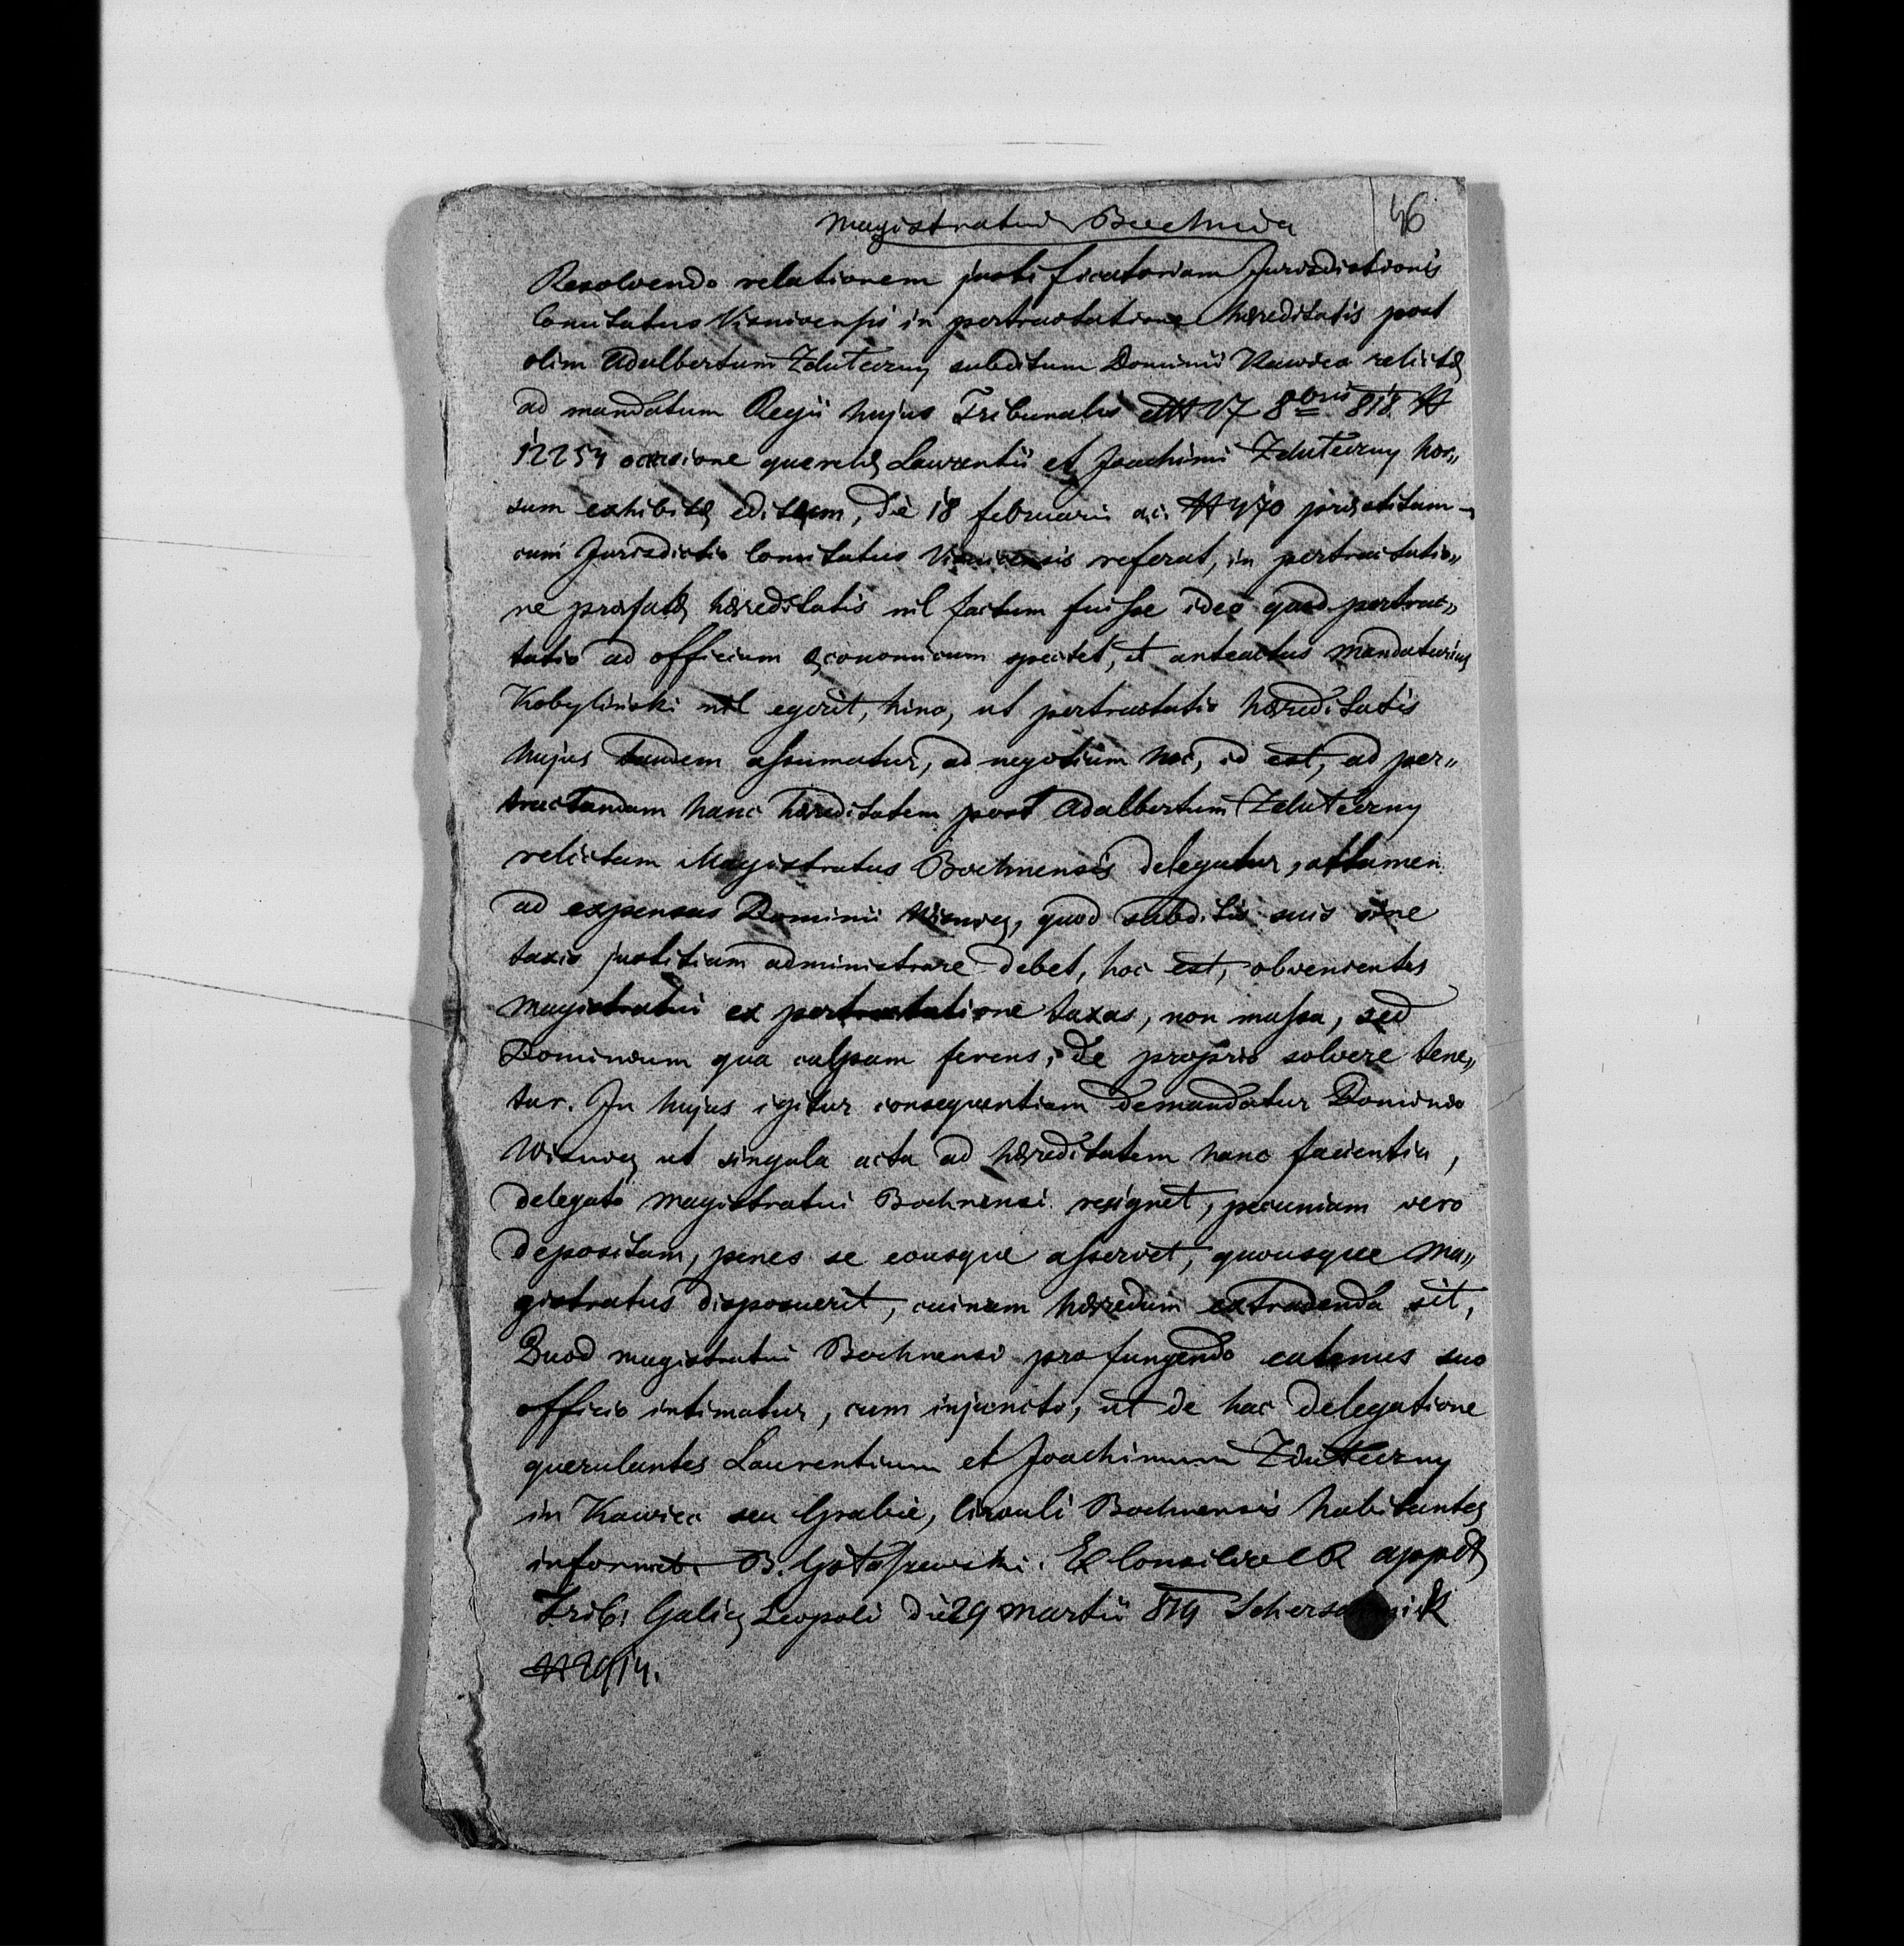 46
Magistratui Bochnia
Resolvendo relationem justificatoriam Jurisdictionis
Comitatus Visnicensis in pertractatione hæreditatis post
olim Adalbertum subditum Dominii relictæ
ad mandatum Regii hujus Tribunalis 8bris 818 N
occasione querelæ Laurentii et Joachimi hor„
sum exhibitæ editum, die 18 februarii a.c. N 470 præstitam
cum Jurisdictio Comitatus Visnicensis referat, in pertractatio„
ne præfatæ hæreditatis nil factum fuisse ideo quod pertrac„
tatio ad officium œconomicum spectet, et anteactus Mandatarius
Kobyliński nil egerit, hinc, ut pertractatio hæreditatis
hujus tandem assumatur, ad negotium hoc, id est, ad per„
tractandam hanc hæreditatem post Adalbertum
relictam Magistratus Bochnensis delegatur, attamen
ad expensas Dominii Wisnicz, quod subditis suis sine
taxis justitiam administrare debet, hoc est, obvenientes
Magistratui ex pertractatione taxas, non massa, sed
Dominium qua culpam ferens, de proprio solvere tene„
tur. In hujus igitur consequentiam demandatur Dominio
Wisnicz ut singula acta ad hæreditatem hanc facientia,
delegato Magistratui Bochnensi resignet, pecuniam vero
depositam, penes se eousque asservet, quousque Ma„
gistratus disposuerit, cuinam hæredum extradenda sit,
Quod magistratui Bochnensi pro fungendo eatenus suo
officio intimatur, cum injuncto, ut de hac delegatione
querulantes Laurentium et Joachimum
in seu Grabie, Circuli Bochnensis habitantes
informet. B. Ex Consilio CR appell
Trib. Galic Leopoli die 29 Martii 819